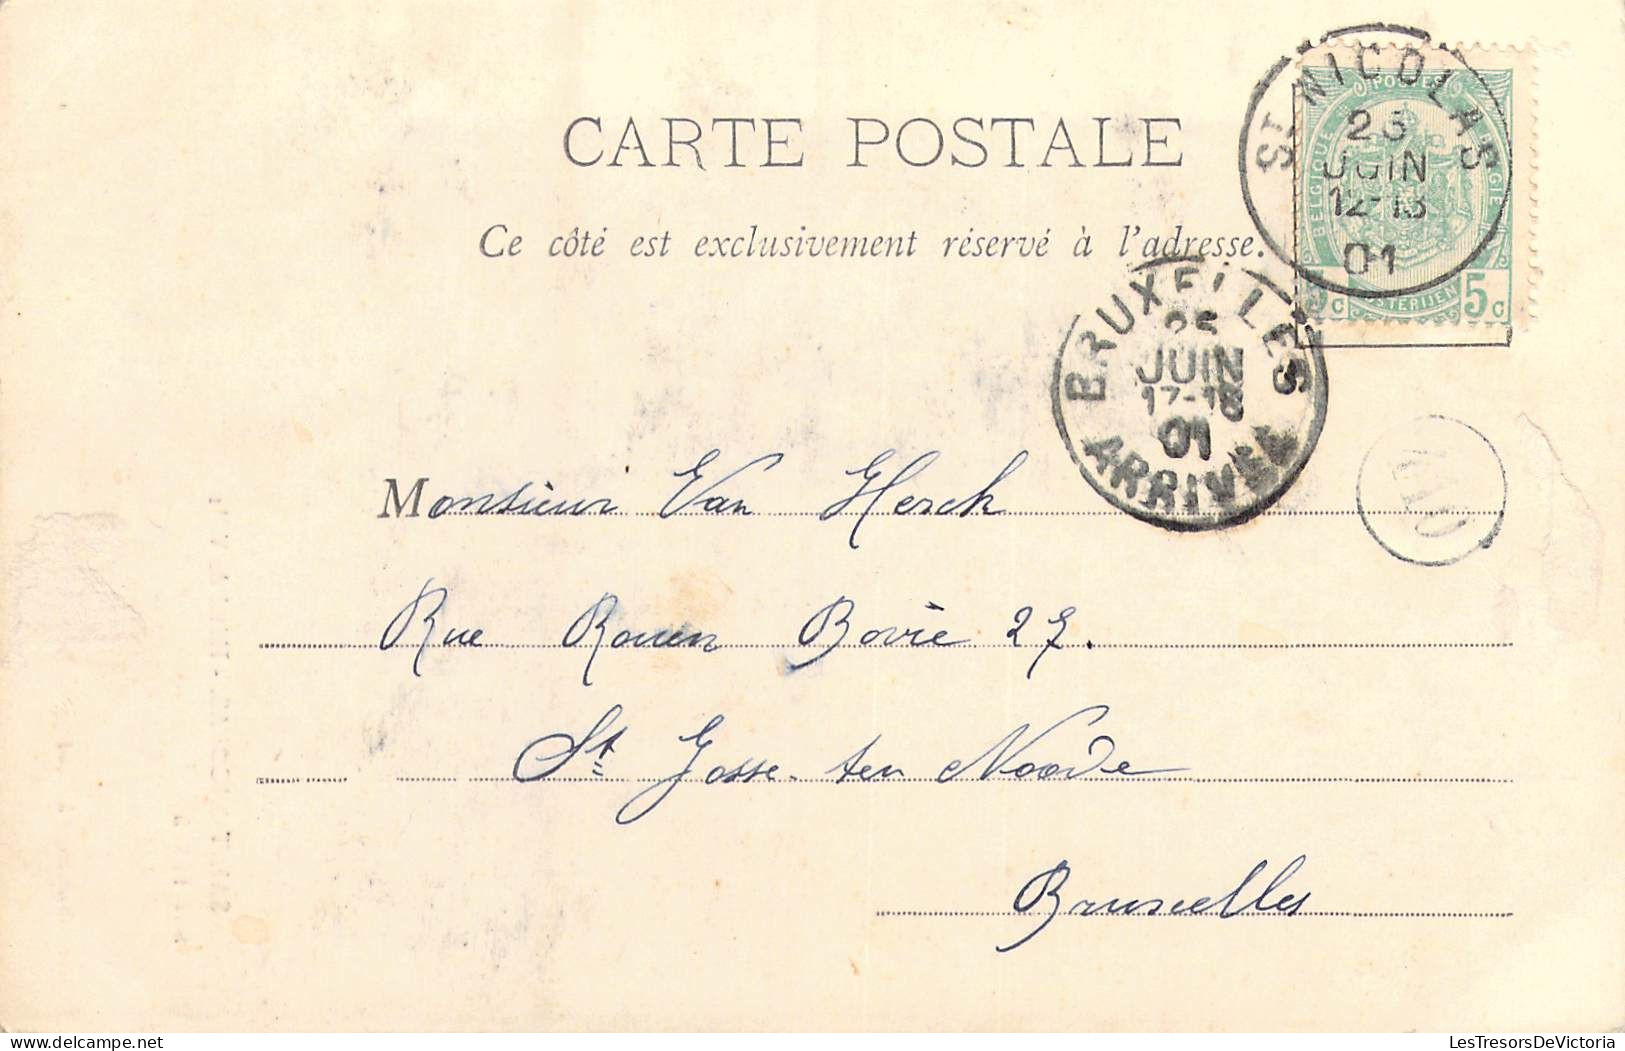 CARTE POSTALE
Ce côté est exclusivement réservé à l'adresse.
ST NICOLAS
JUIN
12-13
01
POSTES
BELGIQUE
BELGIË
5c 5c
BRUXELLES
JUIN
17-18
01
ARRIVEE
Monsieur Van Herck
Rue Rouen Bovie 27.
St Josse-ten Noode
Bruxelles
LesTresorsDeVictoria